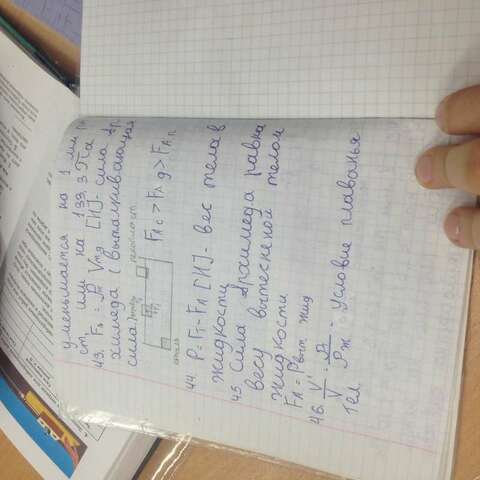 уменьшается на 1 мм
ст, или на 133,3 Па
43. Fₐ = ρж Vтg [Н]- сила Ар-
химеда (выталкивающая
сила)
пенопласт
FА с > FА g > FА п
сталь
44. P = Fт - FА [Н] - вес тела в
жидкости
45. Сила Архимеда равна
весу вытесненой телом
жидкости
FА = Pвыт. жид
46. V'/V = ρт/ρж - условие плаванья
тел.